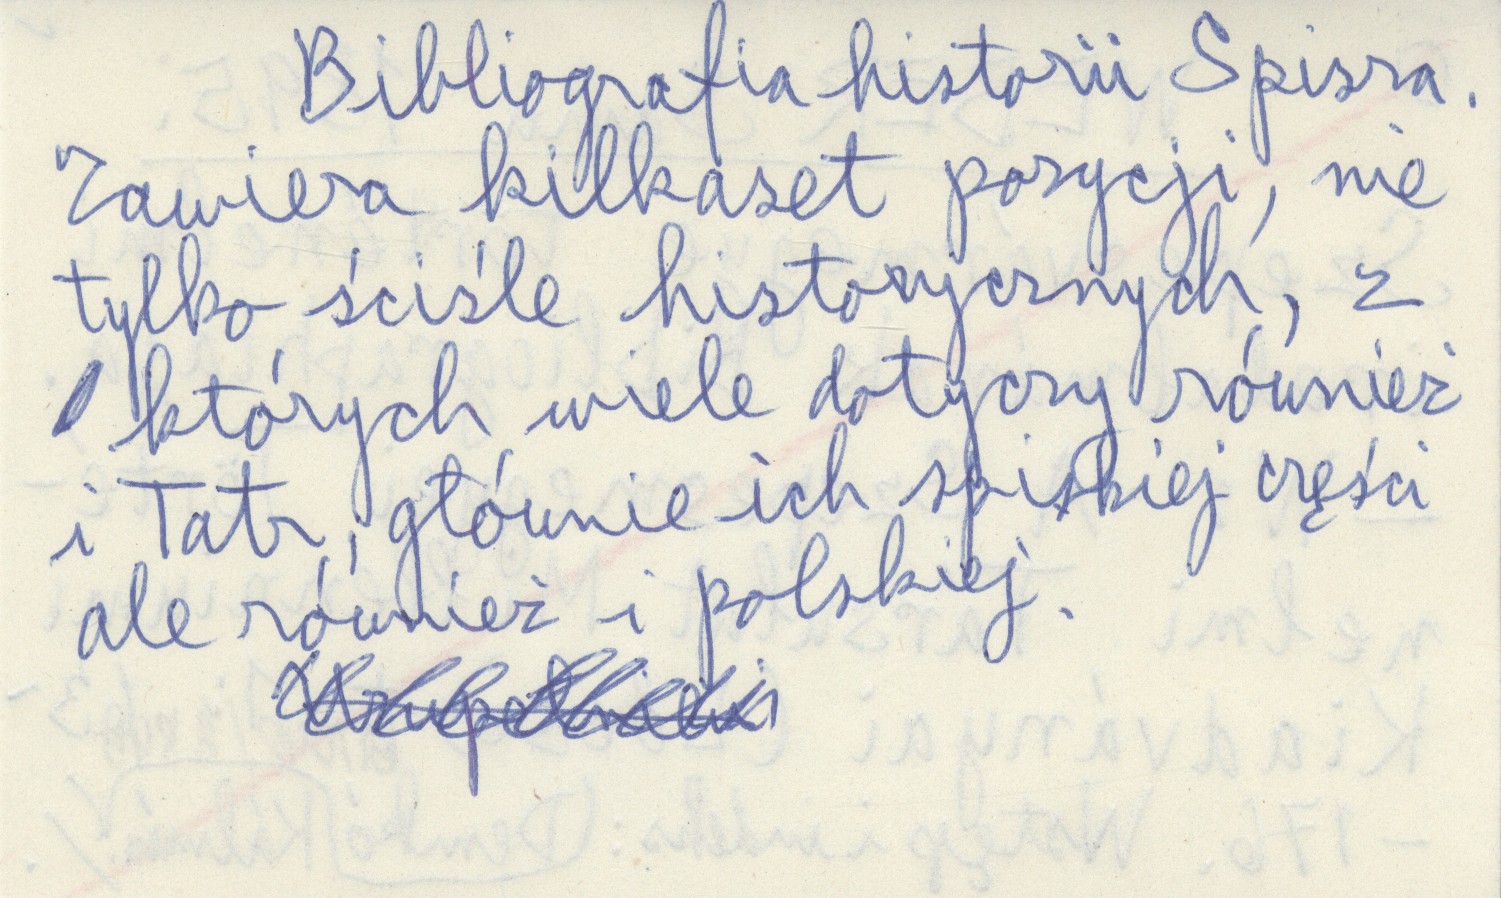 Bibliografia historii Spisza.
Zawiera kilkaset pozycji, nie
tylko ściśle historycznych, z
których wiele dotyczy również
i Tatr, głównie ich spiskiej części
ale również i polskiej.